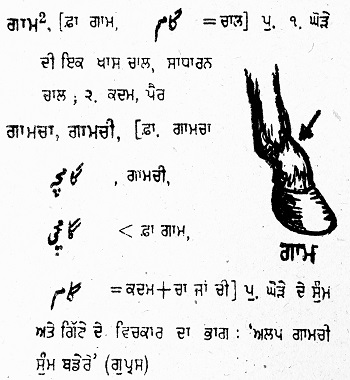 ਗਾਮ², [ਫ਼ਾ ਗਾਮ, گام =ਚਾਲ] ਪੁ. ੧. ਘੋੜੇ
ਦੀ ਇਕ ਖਾਸ ਚਾਲ, ਸਾਧਾਰਨ
ਚਾਲ ; ੨. ਕਦਮ, ਪੈਰ
ਗਾਮਚਾ, ਗਾਮਚੀ, [ਫ਼ਾ. ਗਾਮਚਾ
, ਗਾਮਚੀ,
< ਫ਼ਾ ਗਾਮ,
ਗਾਮ
گام =ਕਦਮ+ਚਾ ਜਾਂ ਚੀ] ਪੁ. ਘੋੜੇ ਦੇ ਸੁੰਮ
ਅਤੇ ਗਿੱਟੇ ਦੇ ਵਿਚਕਾਰ ਦਾ ਭਾਗ : 'ਅਲਪ ਗਾਮਚੀ
ਸੁੰਮ ਬਡੇਰੇ' (ਗੁਪ੍ਰਸ)